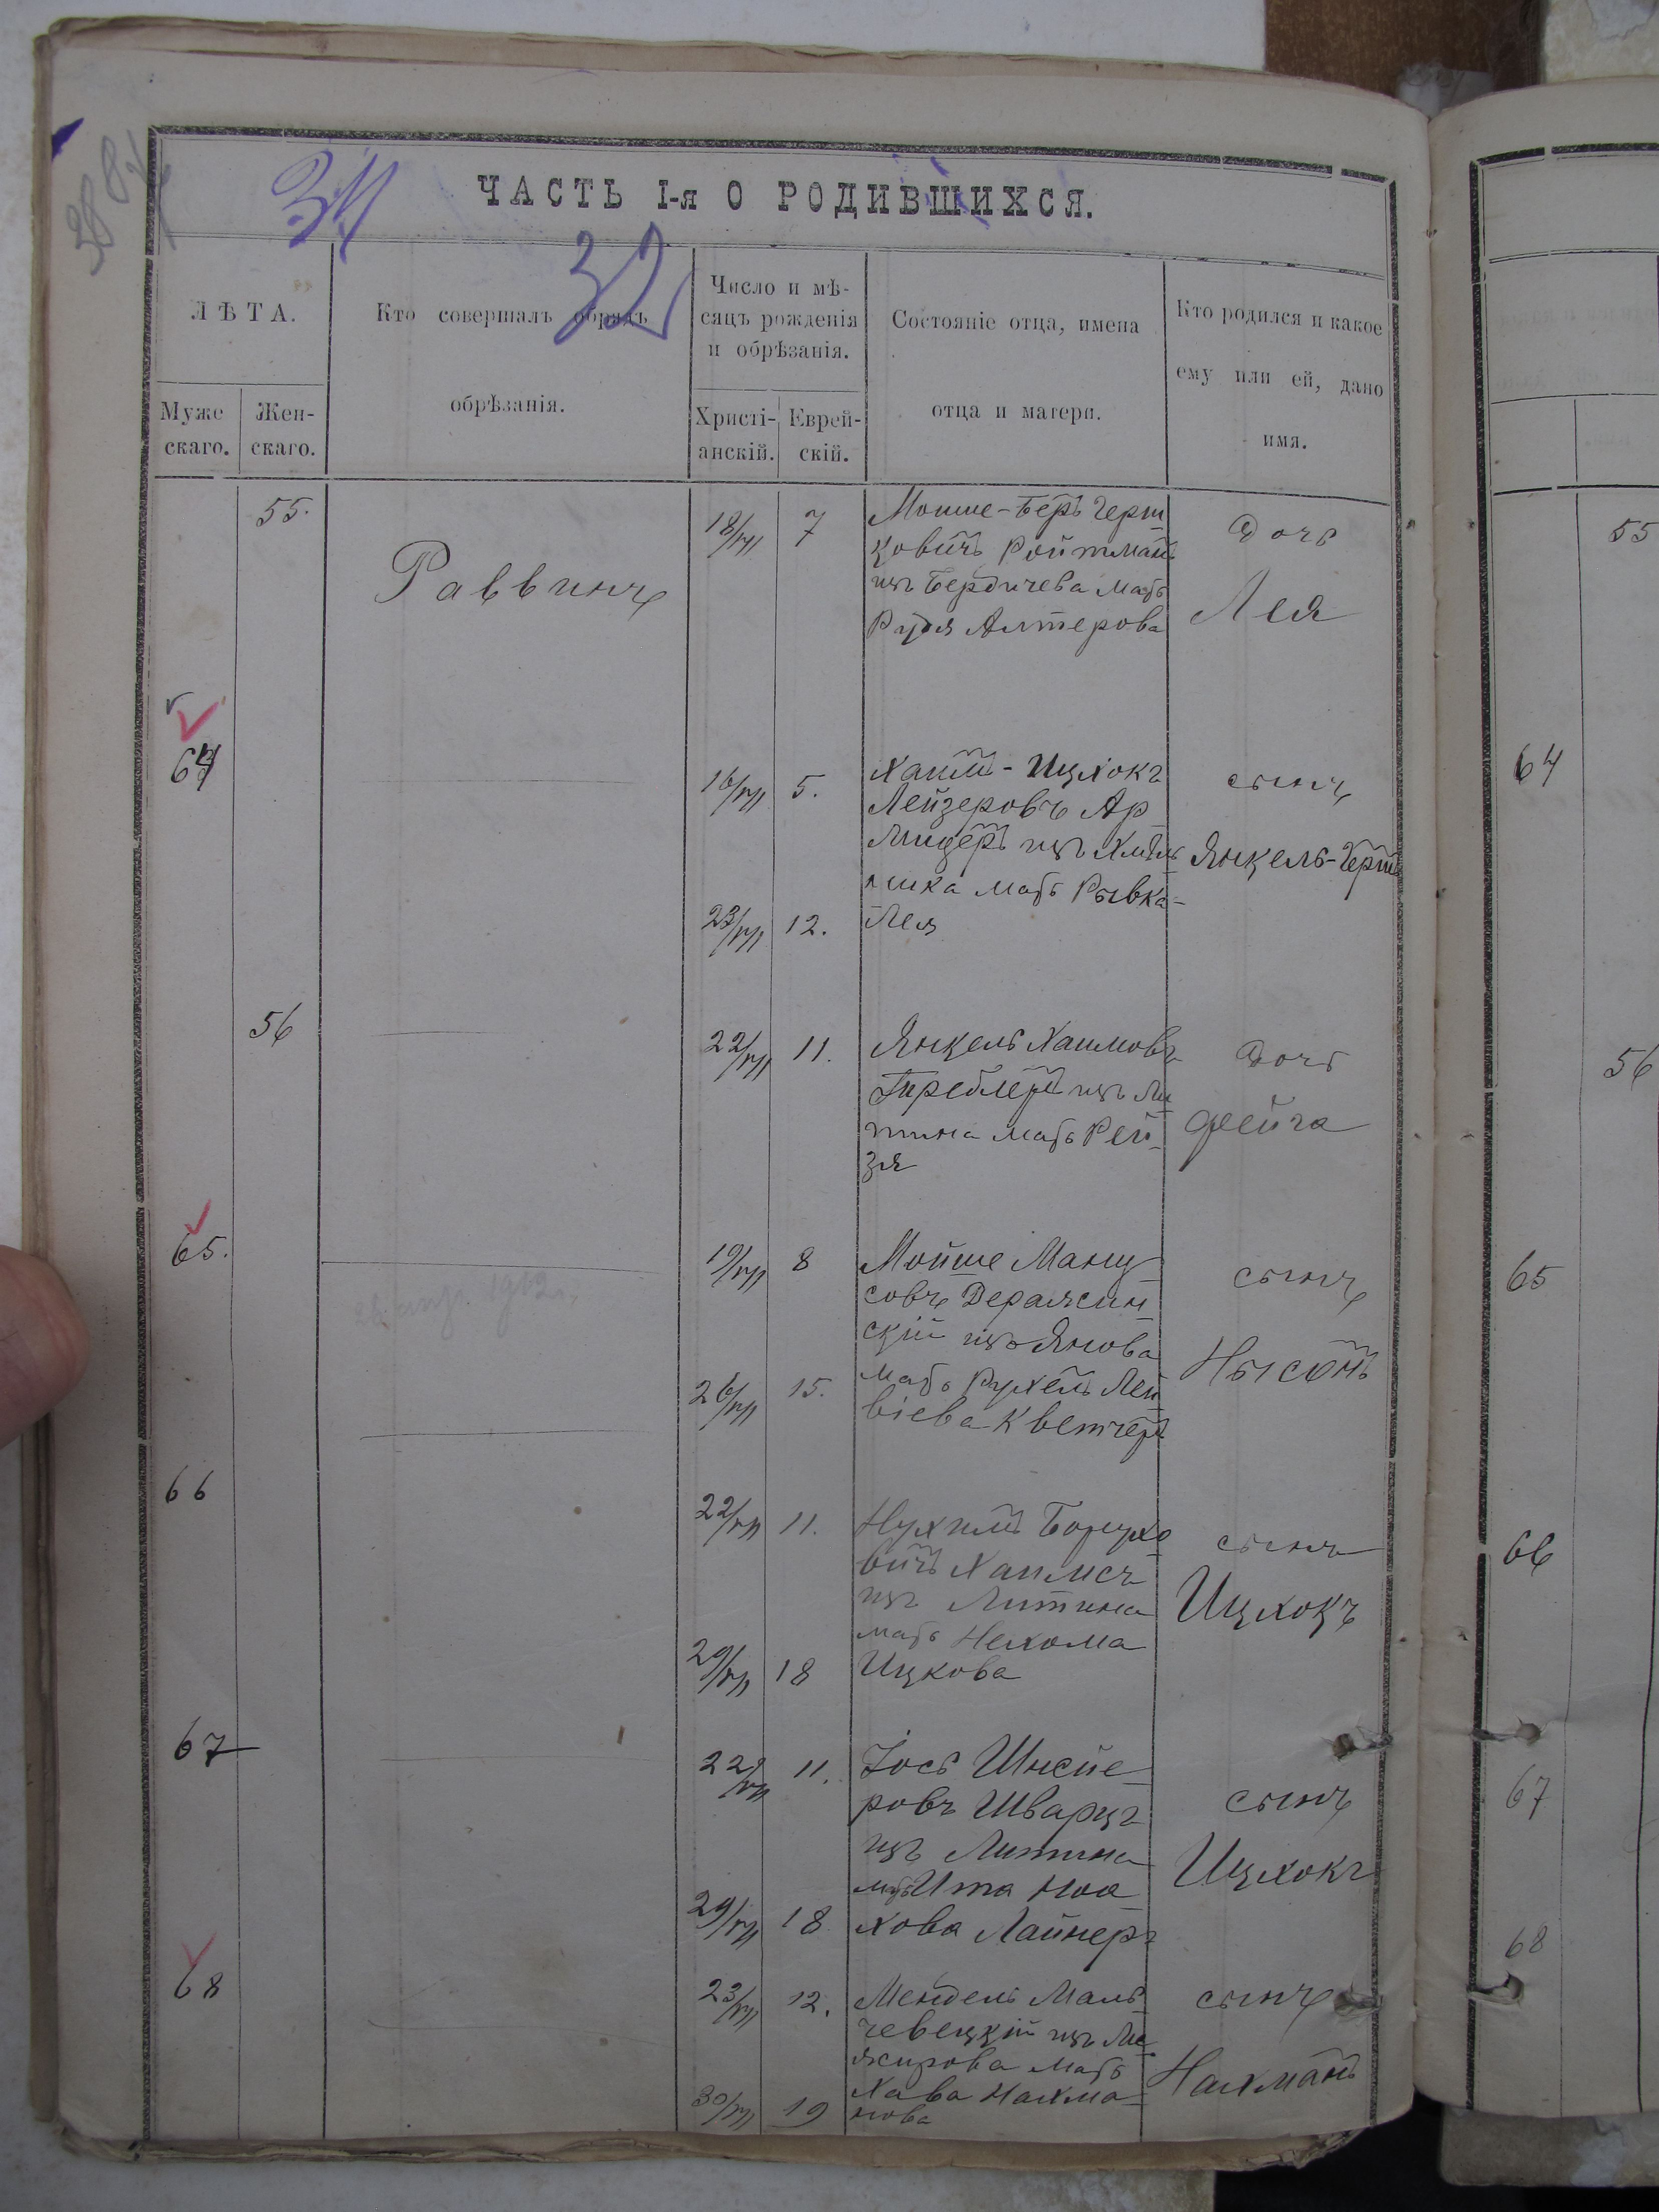 34
32
ЧАСТЬ I-я О РОДИВШИХСЯ.
ЛѢТА.
Муже
скаго.
Жен-
скаго.
Кто совершалъ обрядъ
обрѣзанія.
Число и мѣ-
сяцъ рожденія
и обрѣзанія.
Христі-
анскій.
Еврей-
скій.
Состояніе отца, имена
отца и матери.
Кто родился и какое
ему или ей, дано
имя.
55.
Раввинъ
18/VII
7
Мошше-Беръ Герш
ковичъ Ройтманъ
изъ Бердичева мать
Рузя Алтерова
Дочь
Лея
64
16/VII
5.
Хаимъ-Ицхокъ
Лейзеровъ Ар
изъ Хмѣль
ника мать Рывка-
Лея
23/VII
12.
сынъ
Янкель-Герш
56
22/VII
11.
Янкель Хаимовъ
изъ Ли
тина мать Рей
зя
Дочь
Фейга
65.
19/VII
8
МойшеМану
совъ Деражнин
скій изъ Янова
мать Рухель Лей
віева Кветчеръ
26/VII
15.
сынъ
Нысонъ
66
22/VII
11.
Нухимъ Борухо
вичъ Хаимсъ
изъ Литина
мать Нехома
Ицкова
29/VII
18
сынъ
Ицхокъ
67
22/VII
11.
Іось Шнее
ровъ Шварцъ
изъ Литина
мать Ита Ноа
хова Лайнеръ
29/VII
18
сынъ
Ицхокъ
68
23/VII
12.
Мендель Маль
чевецкій изъ Ме
жирова мать
Хава Нахма
нова
30/VII
19
сынъ
Нахманъ
55
64
56
65
66
67
68